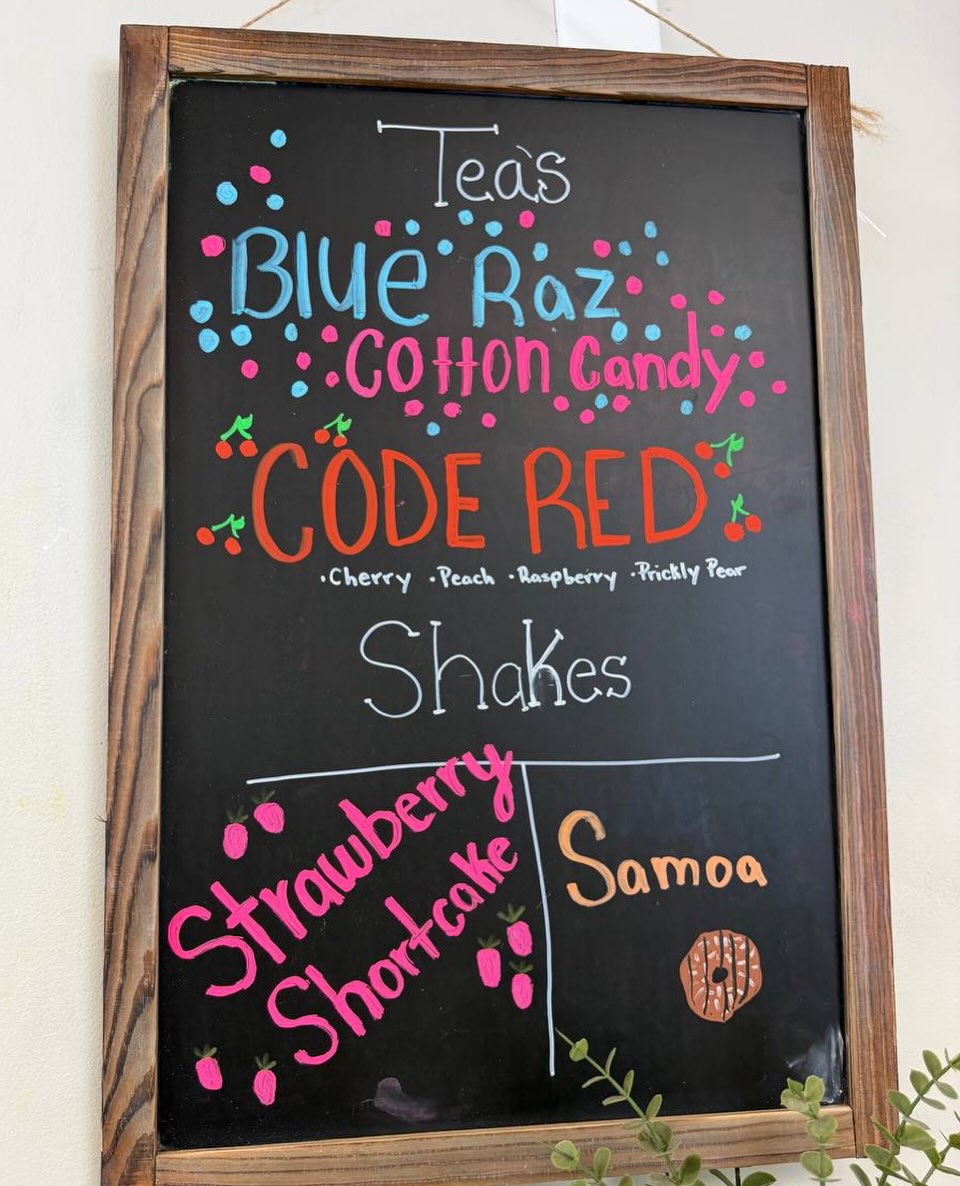 Tea's
Blue Raz
Cotton Candy
CODE RED
•Cherry •Peach •Raspberry •Prickly Pear
Shakes
Strawberry
Shortcake
Samoa